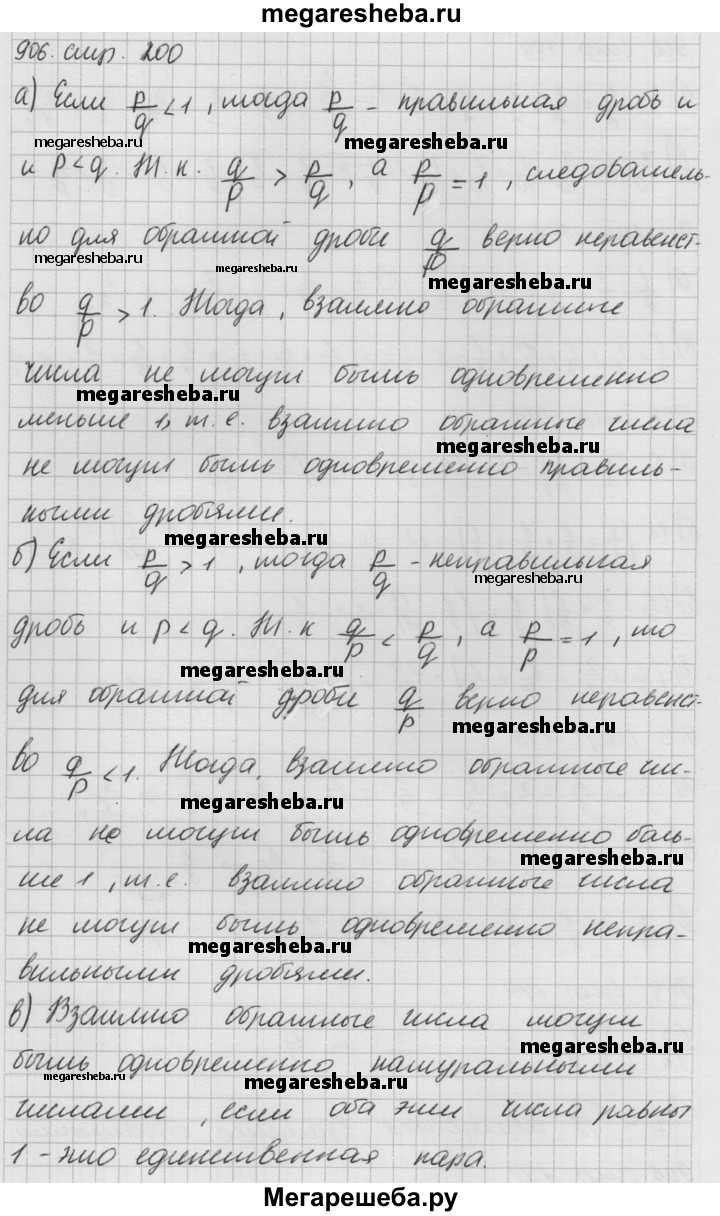 megaresheba.ru
906. стр. 200
а) Если p/q < 1, тогда p/q – правильная дробь и
megaresheba.ru megaresheba.ru
и p < q. Т.к. q/p > p/q, а p/p = 1, следователь-
но для обратной дроби q/p верно неравенст-
megaresheba.ru megaresheba.ru megaresheba.ru
во q/p > 1. Тогда, взаимно обратные
числа не могут быть одновременно
megaresheba.ru
меньше 1, т.е. взаимно обратные числа
megaresheba.ru
не могут быть одновременно правиль-
ными дробями.
megaresheba.ru
б) Если p/q > 1, тогда p/q - неправильная
megaresheba.ru
дробь и p < q. Т.к q/p < p/q, а p/p = 1, то
megaresheba.ru
для обратной дроби q/p верно неравенст-
megaresheba.ru
во q/p < 1. Тогда, взаимно обратные чи-
megaresheba.ru
ла не могут быть одновременно боль-
megaresheba.ru
ше 1, т.е. взаимно обратные числа
не могут быть одновременно непра-
megaresheba.ru
вильными дробями.
в) Взаимно обратные числа могут
megaresheba.ru
быть одновременно натуральными
megaresheba.ru megaresheba.ru
числами, если оба эти числа равны
1 - это единственная пара.
Мегарешеба.ру